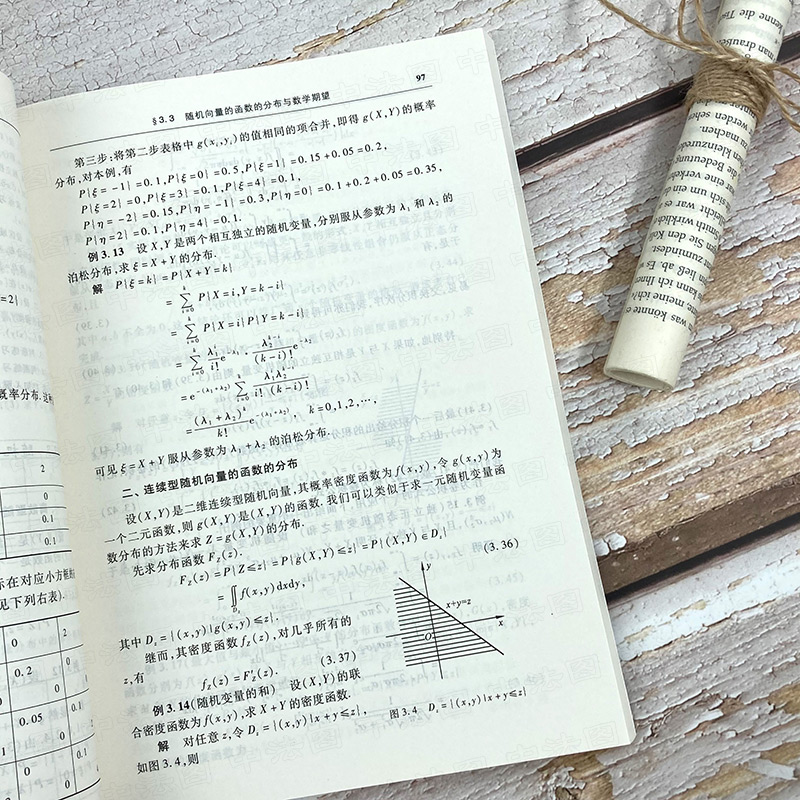 §3.3 随机向量的函数的分布与数学期望 97
第三步:将第二步表格中 g(xᵢ,yⱼ)的值相同的项合并,即得 g(X,Y)的概率
分布,对本例,有
P{ξ=-1}=0.1,P{ξ=0}=0.5,P{ξ=1}=0.15+0.05=0.2,
P{ξ=2}=0,P{ξ=3}=0.1,P{ξ=4}=0.1,
P{η=-2}=0.15,P{η=-1}=0.3,P{η=0}=0.1+0.2+0.05=0.35,
P{η=2}=0.1,P{η=4}=0.1.
例 3.13 设 X,Y 是两个相互独立的随机变量,分别服从参数为 λ₁ 和 λ₂ 的
泊松分布,求 ξ=X+Y 的分布.
解 P{ξ=k}=P{X+Y=k}
=∑_{i=0}^{k} P{X=i,Y=k-i}
=∑_{i=0}^{k} P{X=i}P{Y=k-i}
=∑_{i=0}^{k} λ₁ⁱ/i! e^{-λ₁}·λ₂^{k-i}/(k-i)! e^{-λ₂}
=e^{-(λ₁+λ₂)} ∑_{i=0}^{k} λ₁ⁱλ₂^{k-i}/(i!(k-i)!)
=(λ₁+λ₂)ᵏ/k! e^{-(λ₁+λ₂)}, k=0,1,2,…,
可见 ξ=X+Y 服从参数为 λ₁+λ₂ 的泊松分布.
二、连续型随机向量的函数的分布
设(X,Y)是二维连续型随机向量,其概率密度函数为 f(x,y),令 g(x,y)为
一个二元函数,则 g(X,Y)是(X,Y)的函数.我们可以类似于求一元随机变量函
数分布的方法来求 Z=g(X,Y)的分布.
先求分布函数 F_Z(z).
F_Z(z)=P{Z≤z}=P{g(X,Y)≤z}=P{(X,Y)∈D_z}
=∬_{D_z} f(x,y)dxdy, (3.36)
其中 D_z={(x,y)|g(x,y)≤z}.
继而,其密度函数 f_Z(z),对几乎所有的
z,有
f_Z(z)=F′_Z(z). (3.37)
例 3.14(随机变量的和) 设(X,Y)的联
合密度函数为 f(x,y),求 X+Y 的密度函数.
解 对任意 z,令 D_z={(x,y)|x+y≤z},
如图 3.4,则
y
x+y=z
x
O
图 3.4 D_z={(x,y)|x+y≤z}
=2}
概率分布.这种
2
0
0.1
0.1
示在对应小方框的
见下列右表).
0 2
0.2 0
0
0.05 0.1
0
0 0.1
kenne die
man draußen